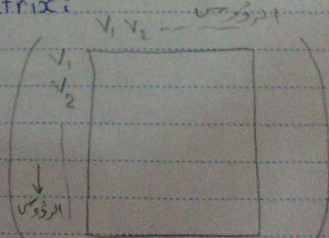 trix:
V₁ V₂ --- الرؤوس
V₁
V₂
الرؤوس